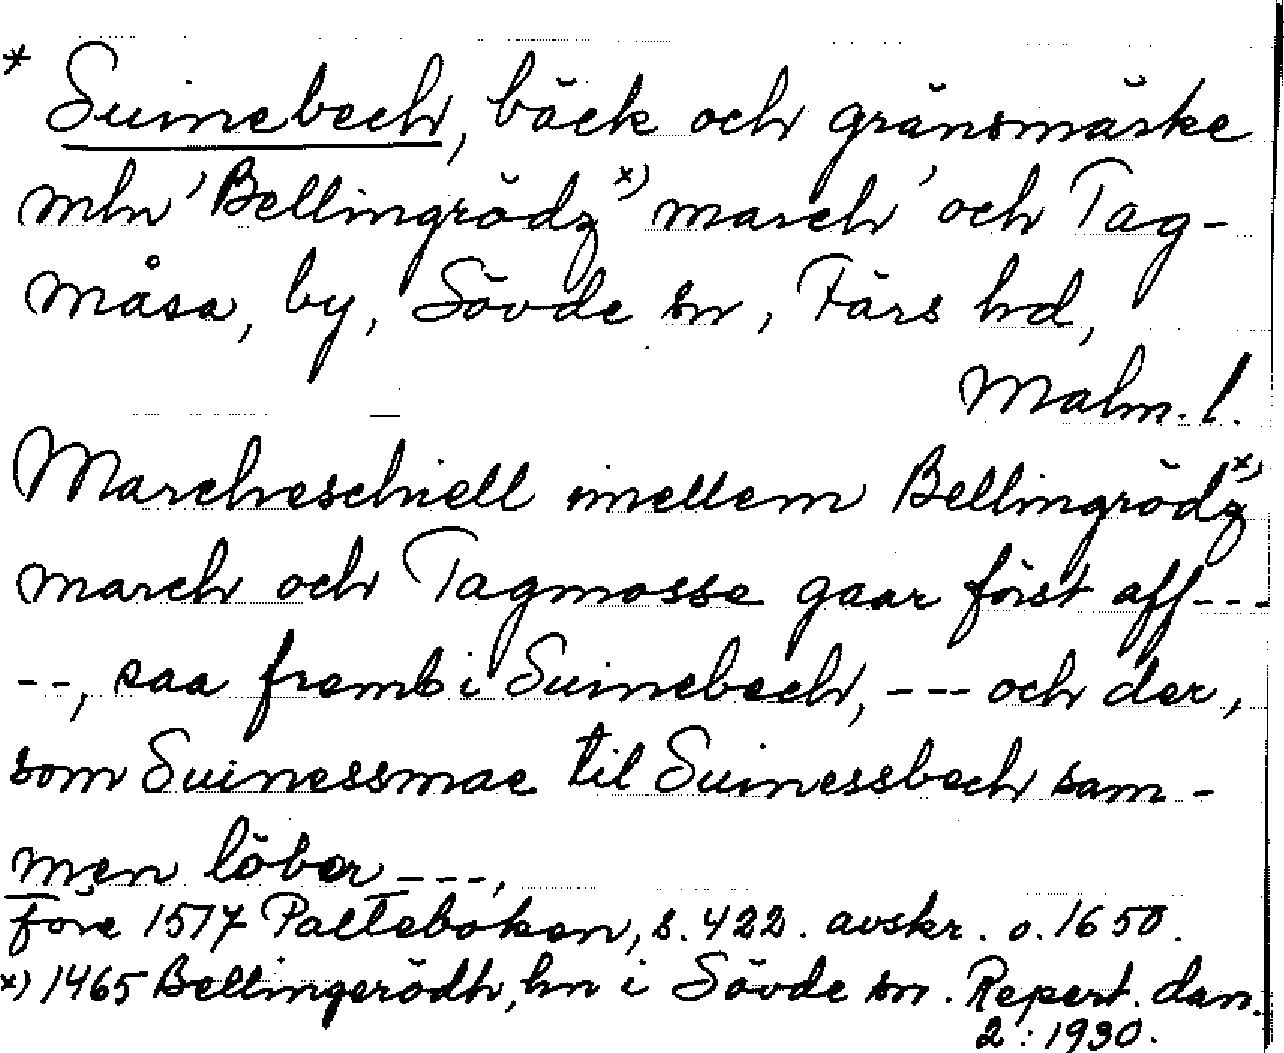 * Suinebech, bäck och gränsmärke
mln 'Bellingrödz x) march' och Tag-
måsa, by, Sövde sn, Färs hd,
Malm. l.
Marcheschiell imellem Bellingrödz x)
march och Tagmosse gaar först aff ---
--, saa fremb i Suinebech, --- och der,
som Suinessmae til Suinessbech sam-
men löber ---,
före 1517 Palteboken, s. 422. avskr. o. 1650.
x) 1465 Bellingerödh, hn i Sövde sn. Repert. dan.
2: 1930.